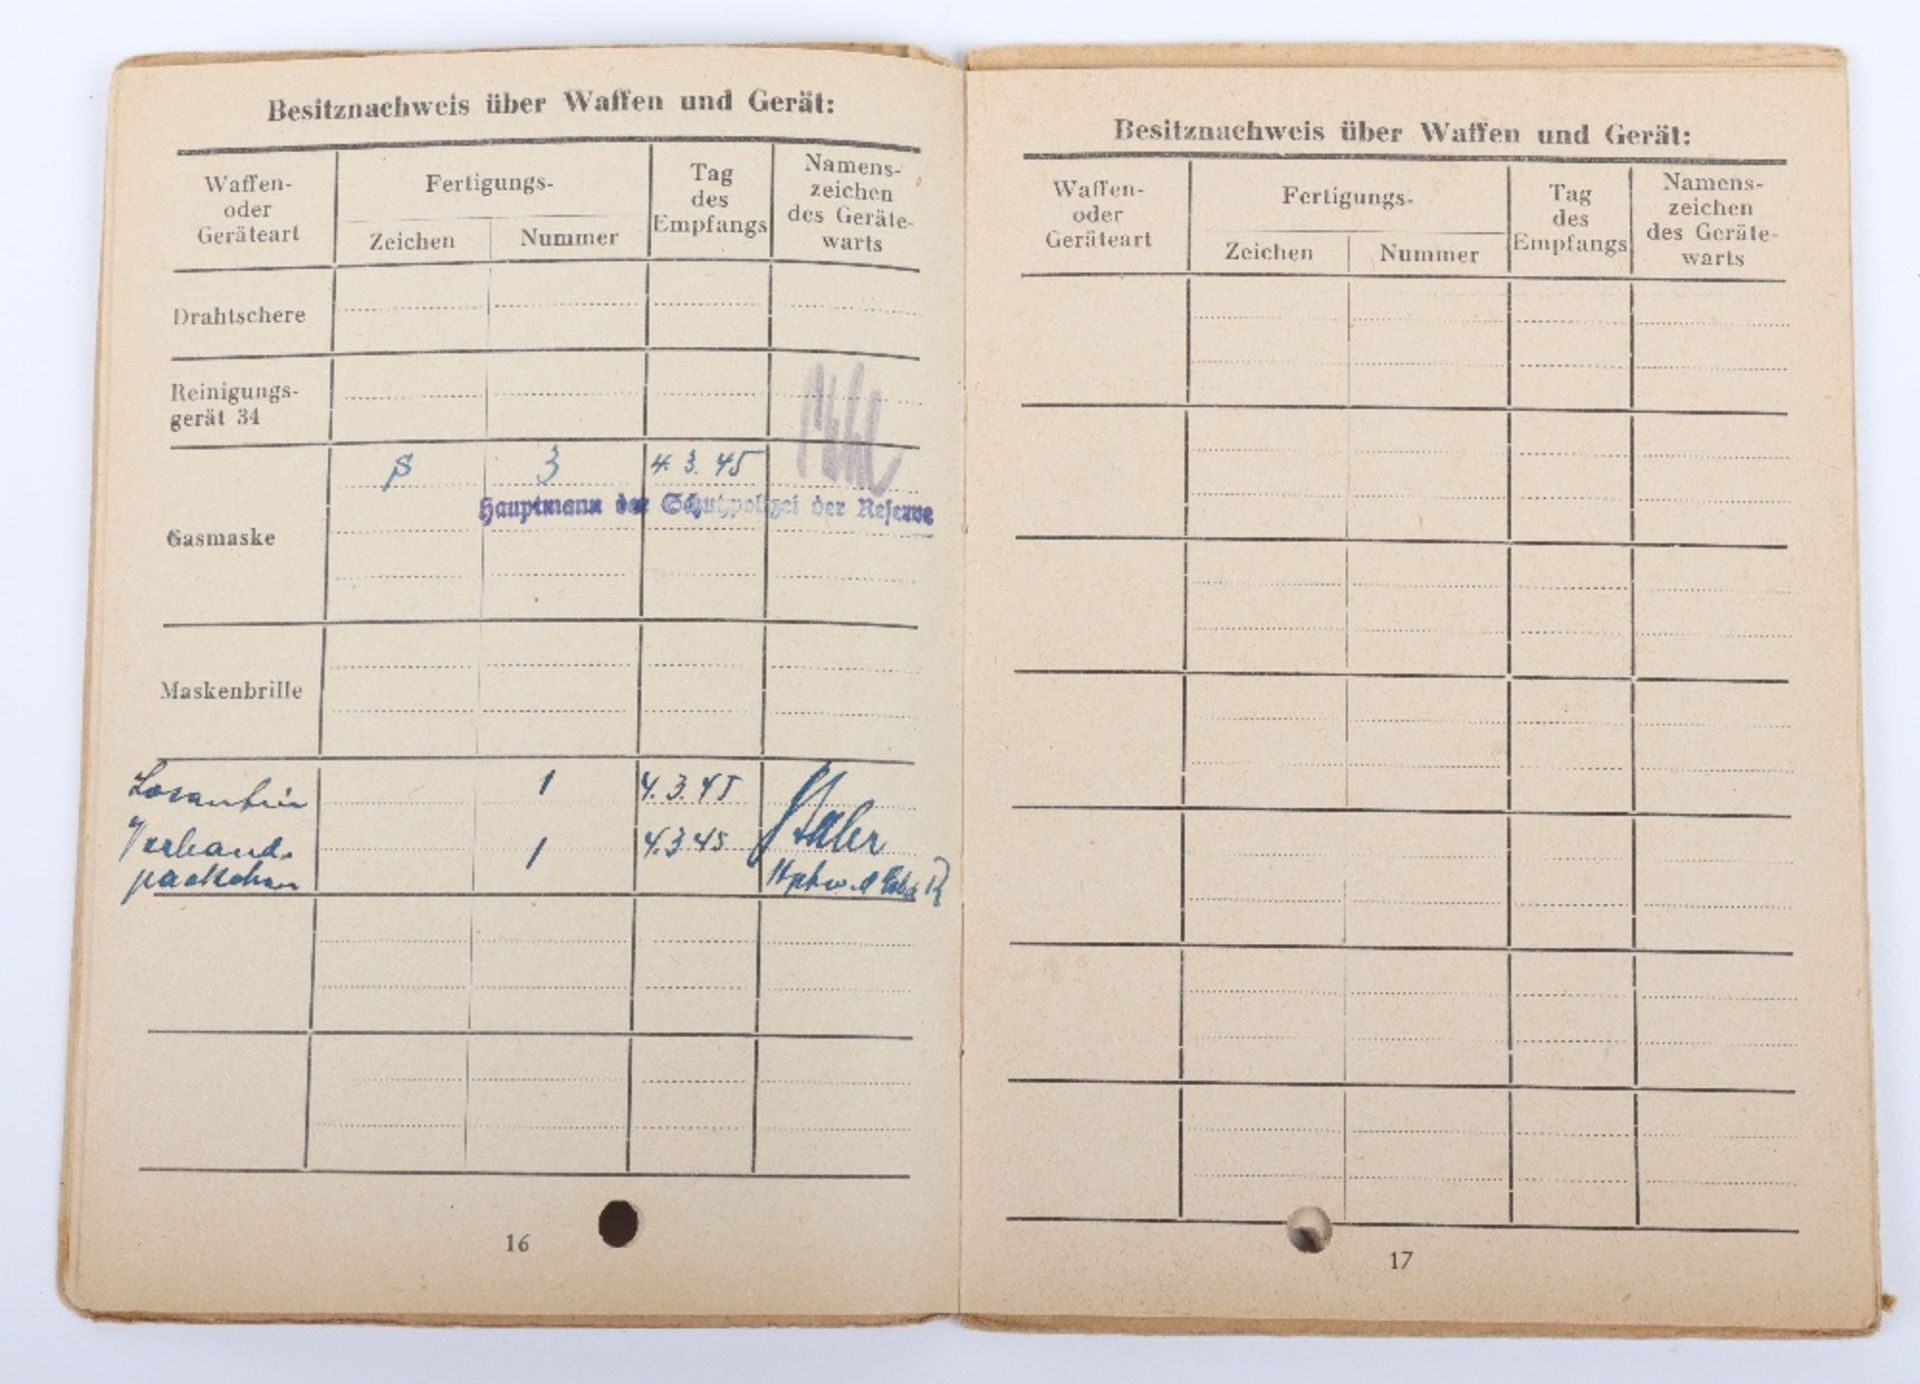 Besitznachweis über Waffen und Gerät:
Waffen- oder Geräteart
Fertigungs-
Zeichen Nummer
Tag des Empfangs
Namens-
zeichen
des Geräte-
warts
Drahtschere
Reinigungs-
gerät 34
Gasmaske
S 3 4.3.45
Hauptmann der Schutzpolizei der Reserve
Maskenbrille
Losantin 1 4.3.45
Verband-
päckchen 1 4.3.45
16
Besitznachweis über Waffen und Gerät:
Waffen- oder Geräteart
Fertigungs-
Zeichen Nummer
Tag des Empfangs
Namens-
zeichen
des Geräte-
warts
17